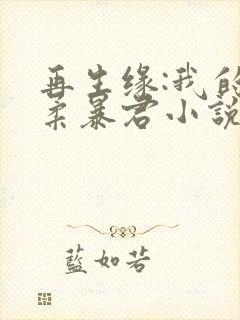 再生缘:我的
柔暴君小説
藍如若